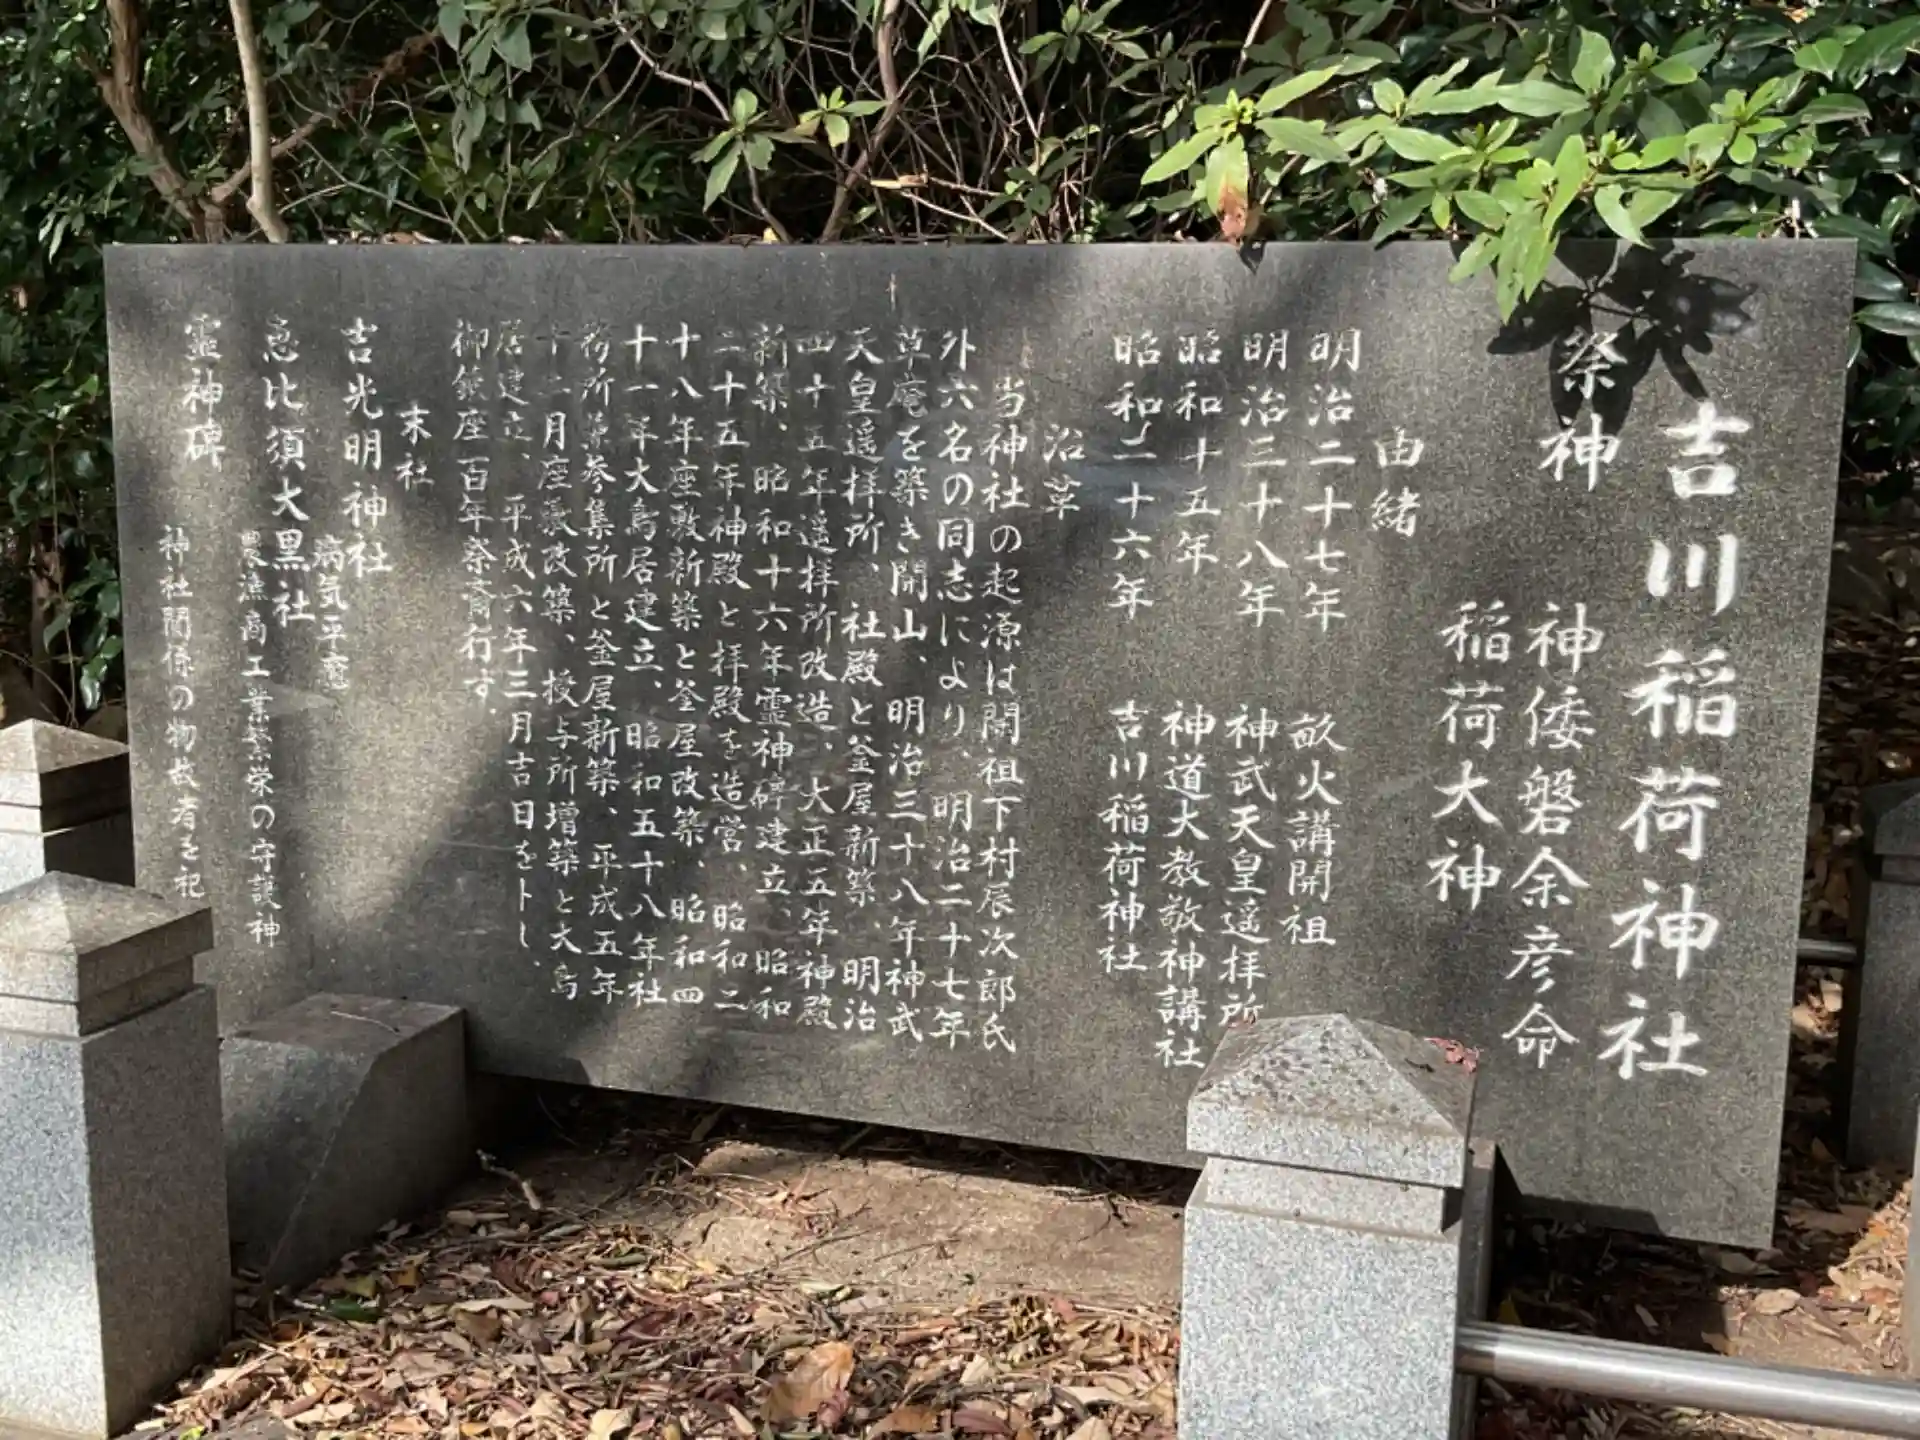 吉川稲荷神社
祭神 神倭磐余彦命
稲荷大神
由緒
明治二十七年 畝火講開祖
明治三十八年 神武天皇遥拝所
昭和十五年 神道大教敬神講社
昭和二十六年 吉川稲荷神社
沿革
当神社の起源は開祖下村辰次郎氏
外六名の同志により、明治二十七年
草庵を築き開山、明治三十八年神武
天皇遥拝所、社殿と釜屋新築、明治
四十五年遥拝所改造、大正五年神殿
新築、昭和十六年霊神碑建立、昭和
二十五年神殿と拝殿を造営、昭和二
十八年座敷新築と釜屋改築、昭和四
十一年大鳥居建立、昭和五十八年社
務所兼参集所と釜屋新築、平成五年
十二月座張改築、授与所増築と大鳥
居建立、平成六年三月吉日を卜し、
御鎮座百年祭斎行す.
末社
吉光明神社 病気平癒
恵比須大黒社 農漁商工業繁栄の守護神
霊神碑 神社関係の物故者を祀